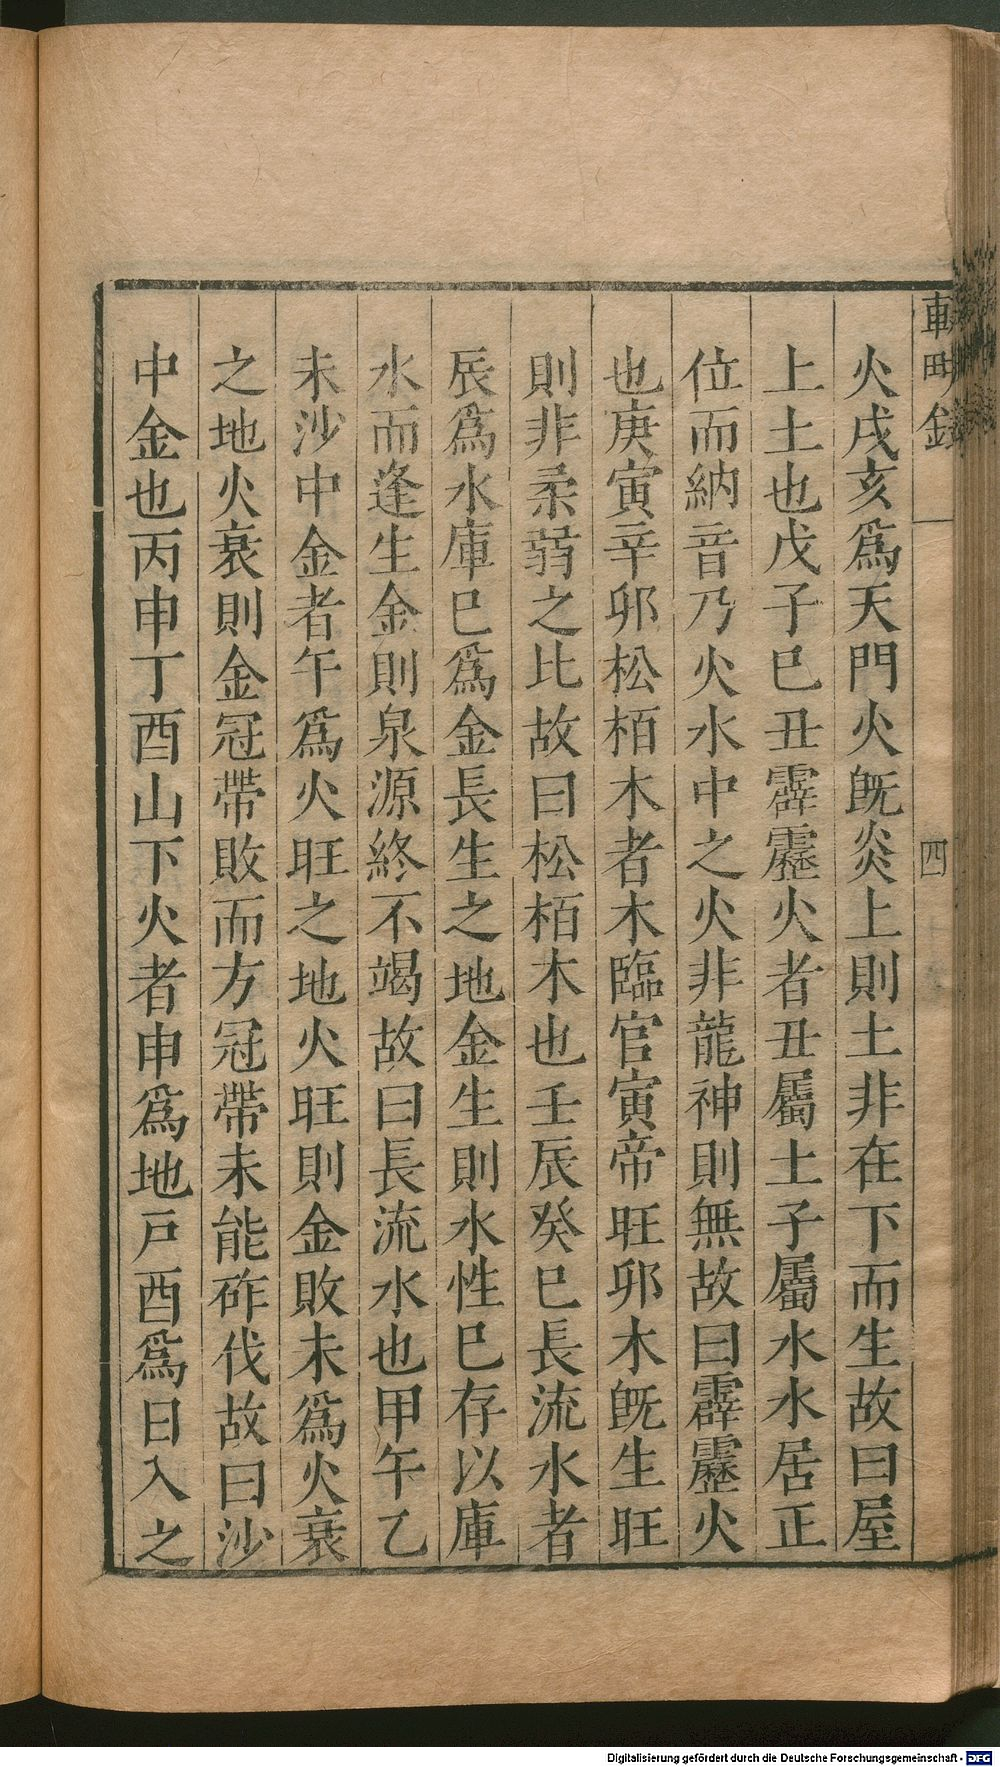 火戌亥爲天門火旣炎上則土非在下而生故曰屋
上土也戊子巳丑霹靂火者丑屬土子屬水水居正
位而納音乃火水中之火非龍神則無故曰霹靂火
也庚寅辛卯松栢木者木臨官寅帝旺卯木旣生旺
則非柔弱之比故曰松栢木也壬辰癸巳長流水者
辰爲水庫巳爲金長生之地金生則水性巳存以庫
水而逢生金則泉源終不竭故曰長流水也甲午乙
未沙中金者午爲火旺之地火旺則金敗未爲火衰
之地火衰則金冠帶敗而方冠帶未能砟伐故曰沙
中金也丙申丁酉山下火者申爲地戸酉爲日入之
四
Digitalisierung gefördert durch die Deutsche Forschungsgemeinschaft - DFG